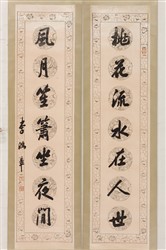 桃花流水在人世
風月笙簫坐夜閒
李鴻章